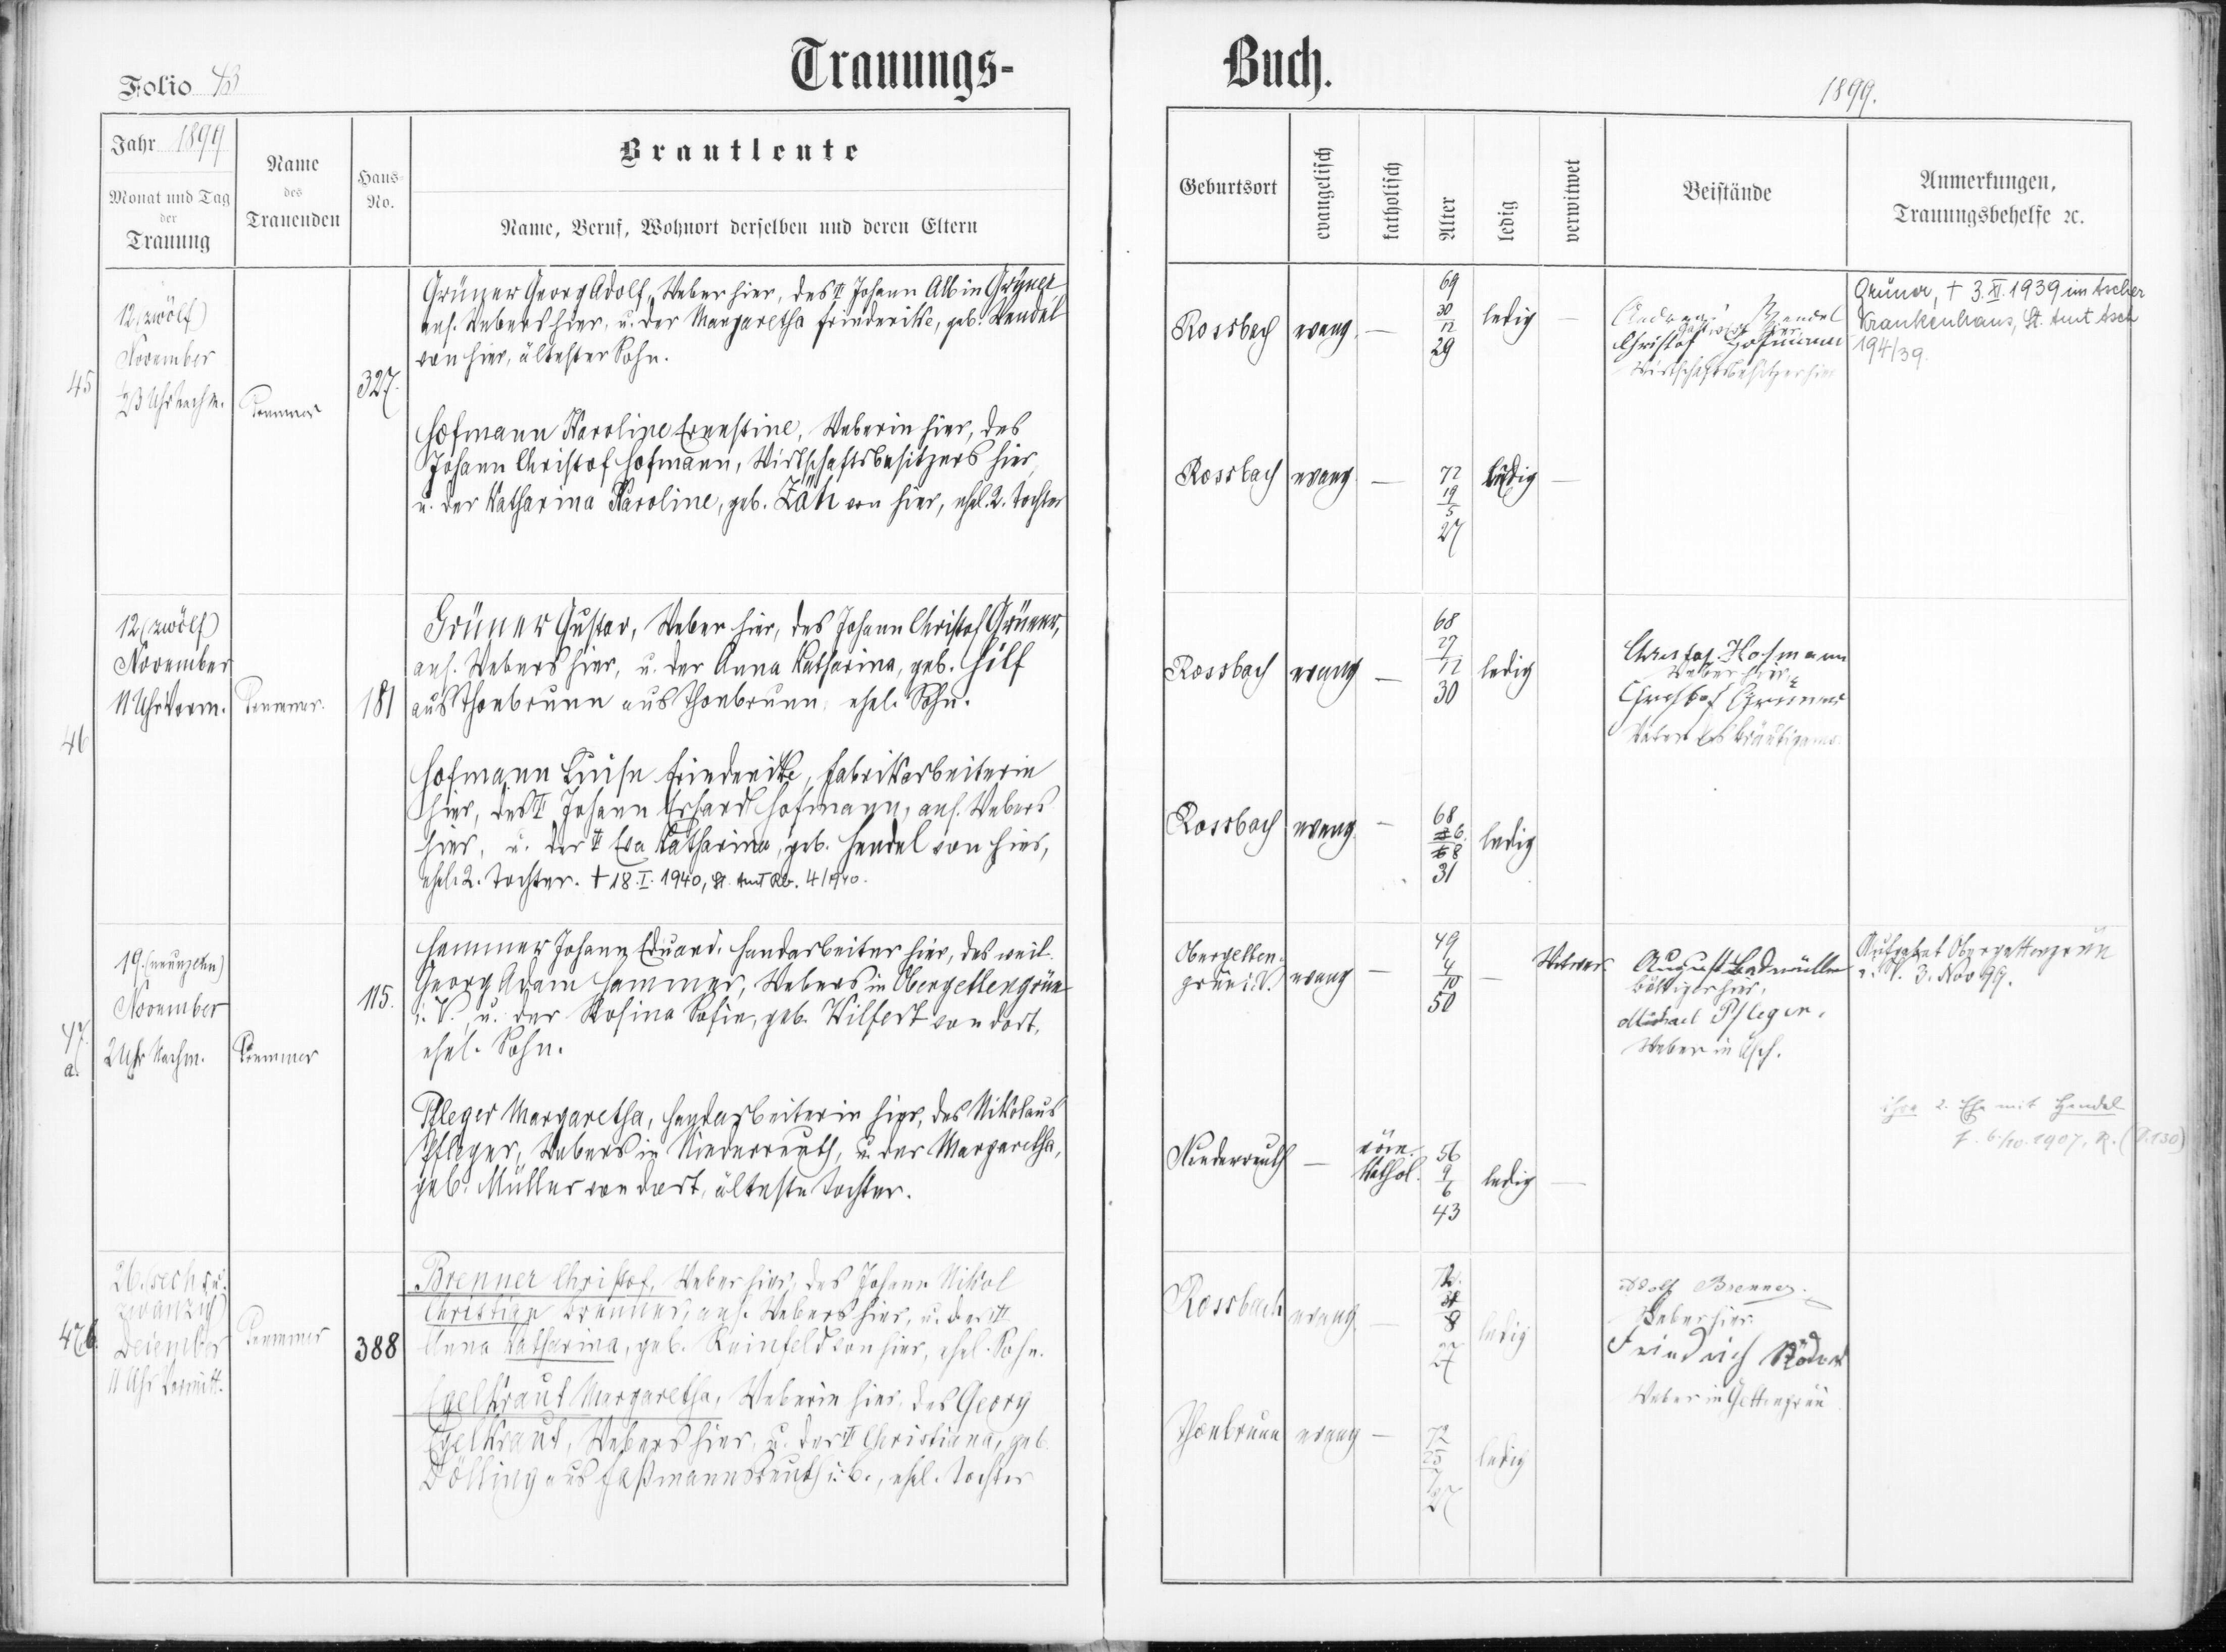 Folio 43
Trauungs-
Jahr 1899
Monat und Tag
der
Trauung
Name
des
Trauenden
Haus-
No.
Brautleute
Name, Beruf, Wohnort derselben und deren Eltern
45
12 (zwölf)
November
Uhr Nachm.
327.
Grüner Georg Adolf, Weber hier, des II Johann Albin Grüner
ans. Webers hier, u. der Margaretha Friederike, geb. Wendel
von hier, ältester Sohn.
Hofmann Karoline Ernestine, Weberin hier, des
Johann Christof Hofmann, Wirtschaftsbesitzers hier,
u. der Katharina Karoline, geb. Zäh von hier, ehel. 2. Tochter
46
12 (zwölf)
November
11 Uhr Vorm.
181
Grüner Gustav, Weber hier, des Johann Christof Grüner,
ans. Webers hier, u. der Anna Katharina, geb. Hilf
aus Thonbrunn aus Thonbrunn, ehel. Sohn.
Hofmann Luise Friederike, Fabrikarbeiterin
hier, des II Johann Erhard Hofmann, ans. Webers
hier, u. der II Eva Katharina, geb. Hendel von hier,
ehel. 2. Tochter. + 18. I. 1940, St. Amt Rb. 4/1940.
47.
a.
19. (neunzehn)
November
2 Uhr Nachm.
115.
Hammer Johann Eduard, Handarbeiter hier, des weil.
Georg Adam Hammer, Webers in Obergettengrün
i. V., u. der Rosina Sofie, geb. Wilfert von dort,
ehel. Sohn.
Pfleger Margaretha, Handarbeiterin hier, des Nikolaus
Pfleger, Webers in Niederreuth, u. der Margaretha,
geb. Müller von dort, älteste Tochter.
47b.
26. (sechsu.
zwanzig)
Dezember
11 Uhr Vormitt.
388
Brenner Christof, Weber hier, des Johann Nikol
Christian Brenner, ans. Webers hier, u. der II
Anna Katharina, geb. Reinfeld von hier, ehel. Sohn.
Egelkraut Margaretha, Weberin hier, des Georg
Egelkraut, Webers hier, u. der II Christiana, geb.
Dölling aus Faßmannsreuth i. B., ehel. Tochter
Buch.
1899.
Geburtsort
evangelisch
katholisch
Alter
ledig
verwitwet
Beistände
Anmerkungen,
Trauungsbehelfe ꝛc.
Rossbach evang. — 69 30/12 29 ledig —
Wendel
Christof Hofmann
Wirtschaftsbesitzer hier
Grüner, + 3. XI. 1939 im Ascher
Krankenhaus, St. Amt Asch
194/39.
Rossbach evang. — 72 19/5 27 ledig —
Rossbach evang — 68 27/12 30 ledig
Christof Hofmann
Weber hier
Christof Grüner
Vater des Bräutigams.
Rossbach evang. — 68 26/8 31 ledig
Obergetten-
grün i. V. evang — 49 4/10 50 — Witwer.
August Badmüller
hier.
Michael Pfleger,
Weber in Asch.
Aufgebot Obergettengrün
i. V. 3. Nov 99.
ihre 2. Ehe mit Hendel
f. 6./10. 1907, R. (S.130)
Niederreuth — röm.
kathol. 56 9/6 43 ledig —
Rossbach evang. — 72. 31/8 27 ledig
Adolf Brenner
Weber hier
Friedrich Röder
Weber in Gettengrün
Thonbrunn evang — 72 25/7 27 ledig